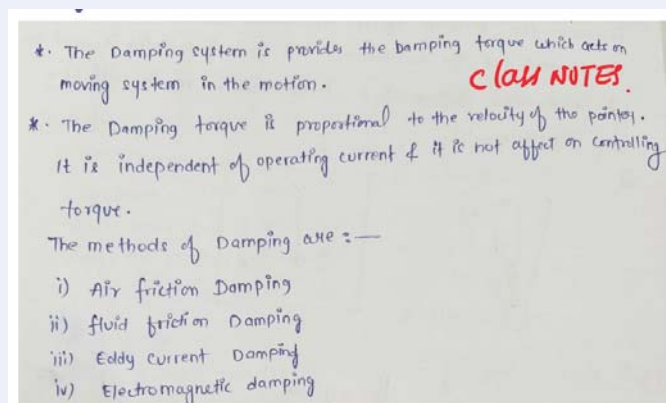 *. The Damping system is provides the bamping torque which acts on
moving system in the motion.
class NOTES.
*. The Damping torque is proportional to the velocity of the pointer.
It is independent of operating current & it is not affect on controlling
torque.
The methods of Damping are :—
i) Air friction Damping
ii) fluid friction Damping
iii) Eddy current Damping
iv) Electromagnetic damping